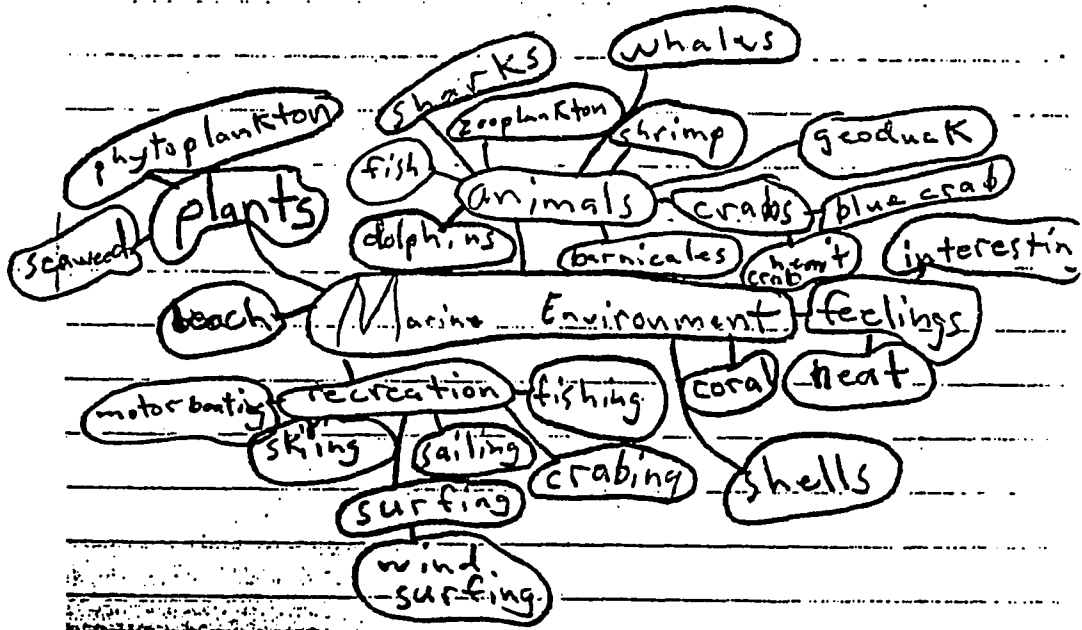 whales
sharks
zooplankton
shrimp
geoduck
phytoplankton
fish
animals
crabs
blue crab
plants
seaweed
dolphins
barnicales
hermit
crab
interestin
beach
Marine Environment
feelings
coral
neat
motor boating
recreation
fishing
skiing
sailing
crabing
shells
surfing
wind
surfing